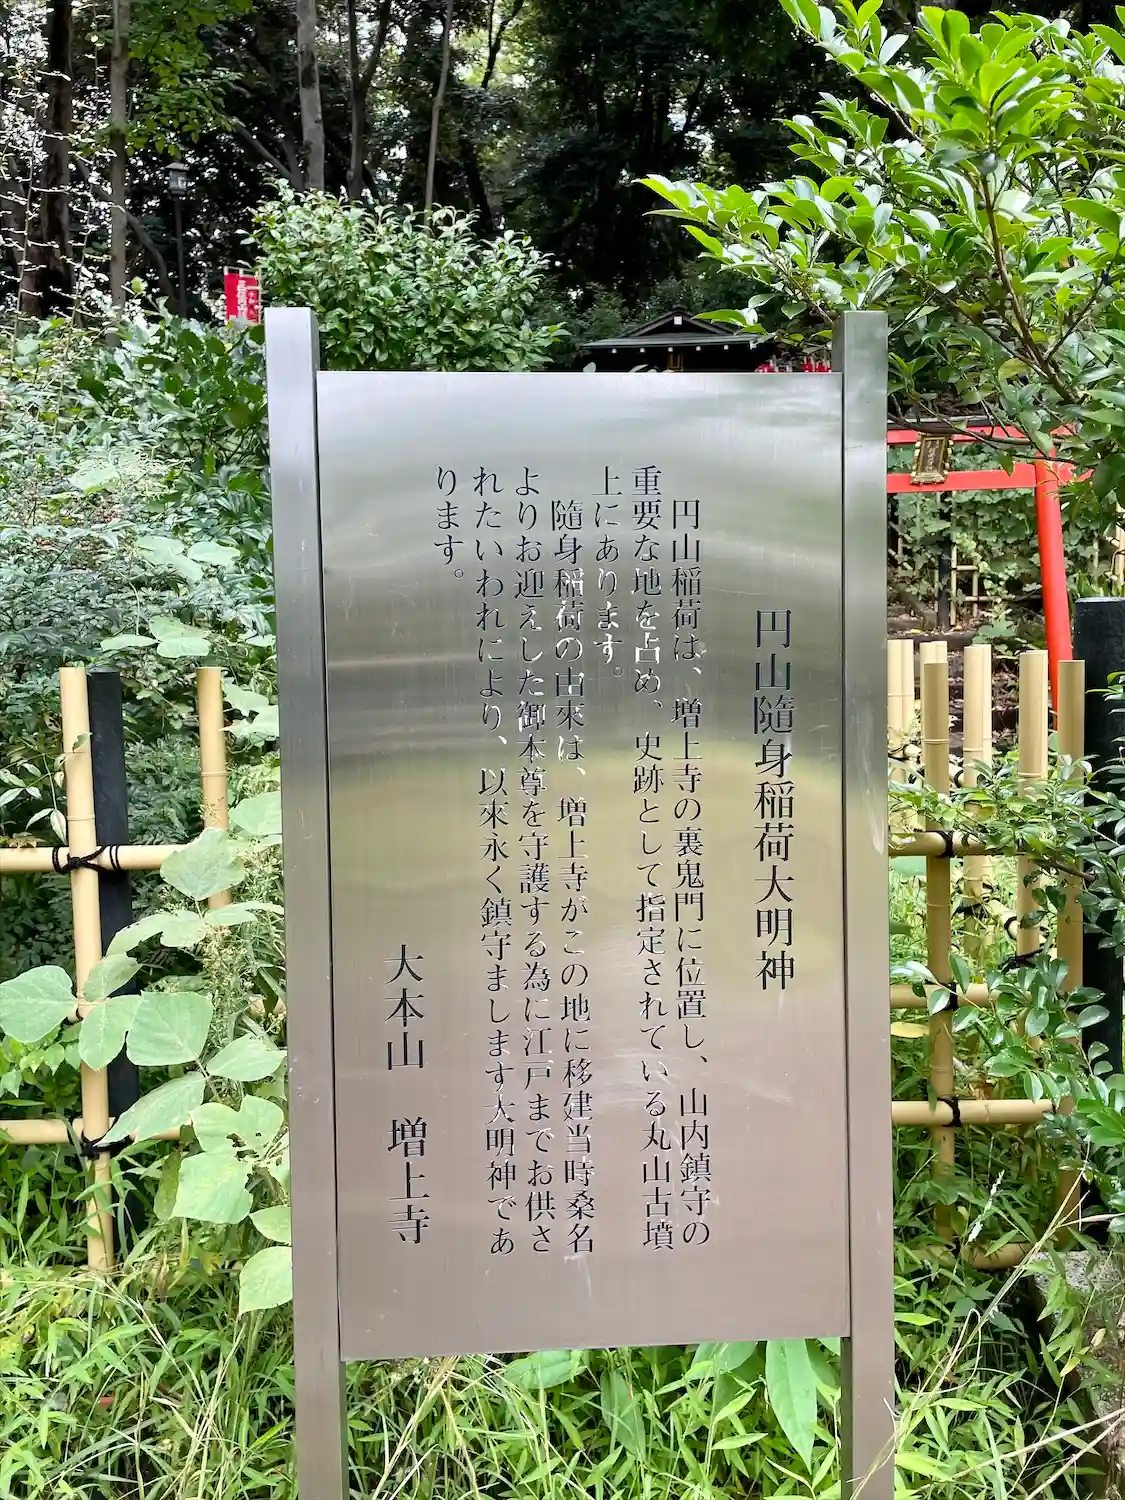 円山隨身稲荷大明神
円山稲荷は、増上寺の裏鬼門に位置し、山内鎮守の
重要な地を占め、史跡として指定されている丸山古墳
上にあります。
隨身稲荷の由來は、増上寺がこの地に移建当時桑名
よりお迎えした御本尊を守護する為に江戸までお供さ
れたいわれにより、以來永く鎮守まします大明神であ
ります。
大本山　増上寺